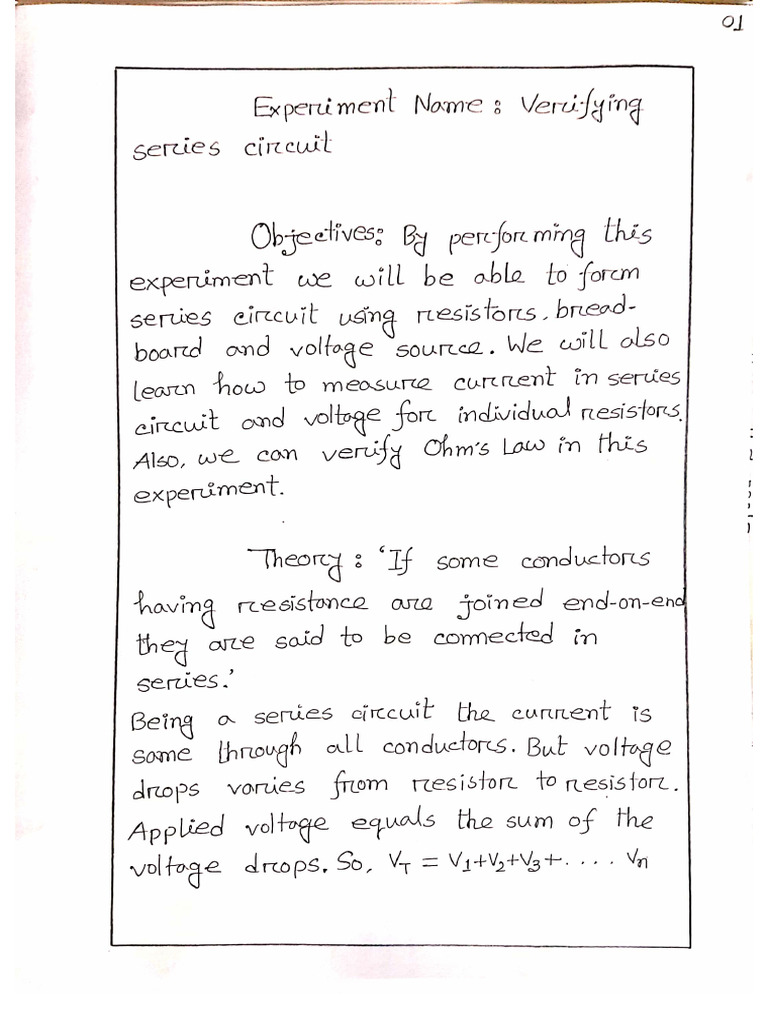 01
Experiment Name: Verifying
series circuit
Objectives: By performing this
experiment we will be able to form
series circuit using resistors, bread-
board and voltage source. We will also
learn how to measure current in series
circuit and voltage for individual resistors.
Also, we can verify Ohm's Law in this
experiment.
Theory: 'If some conductors
having resistance are joined end-on-end
they are said to be connected in
series.'
Being a series circuit the current is
same through all conductors. But voltage
drops varies from resistor to resistor.
Applied voltage equals the sum of the
voltage drops. So, VT = V1+V2+V3+.... Vn